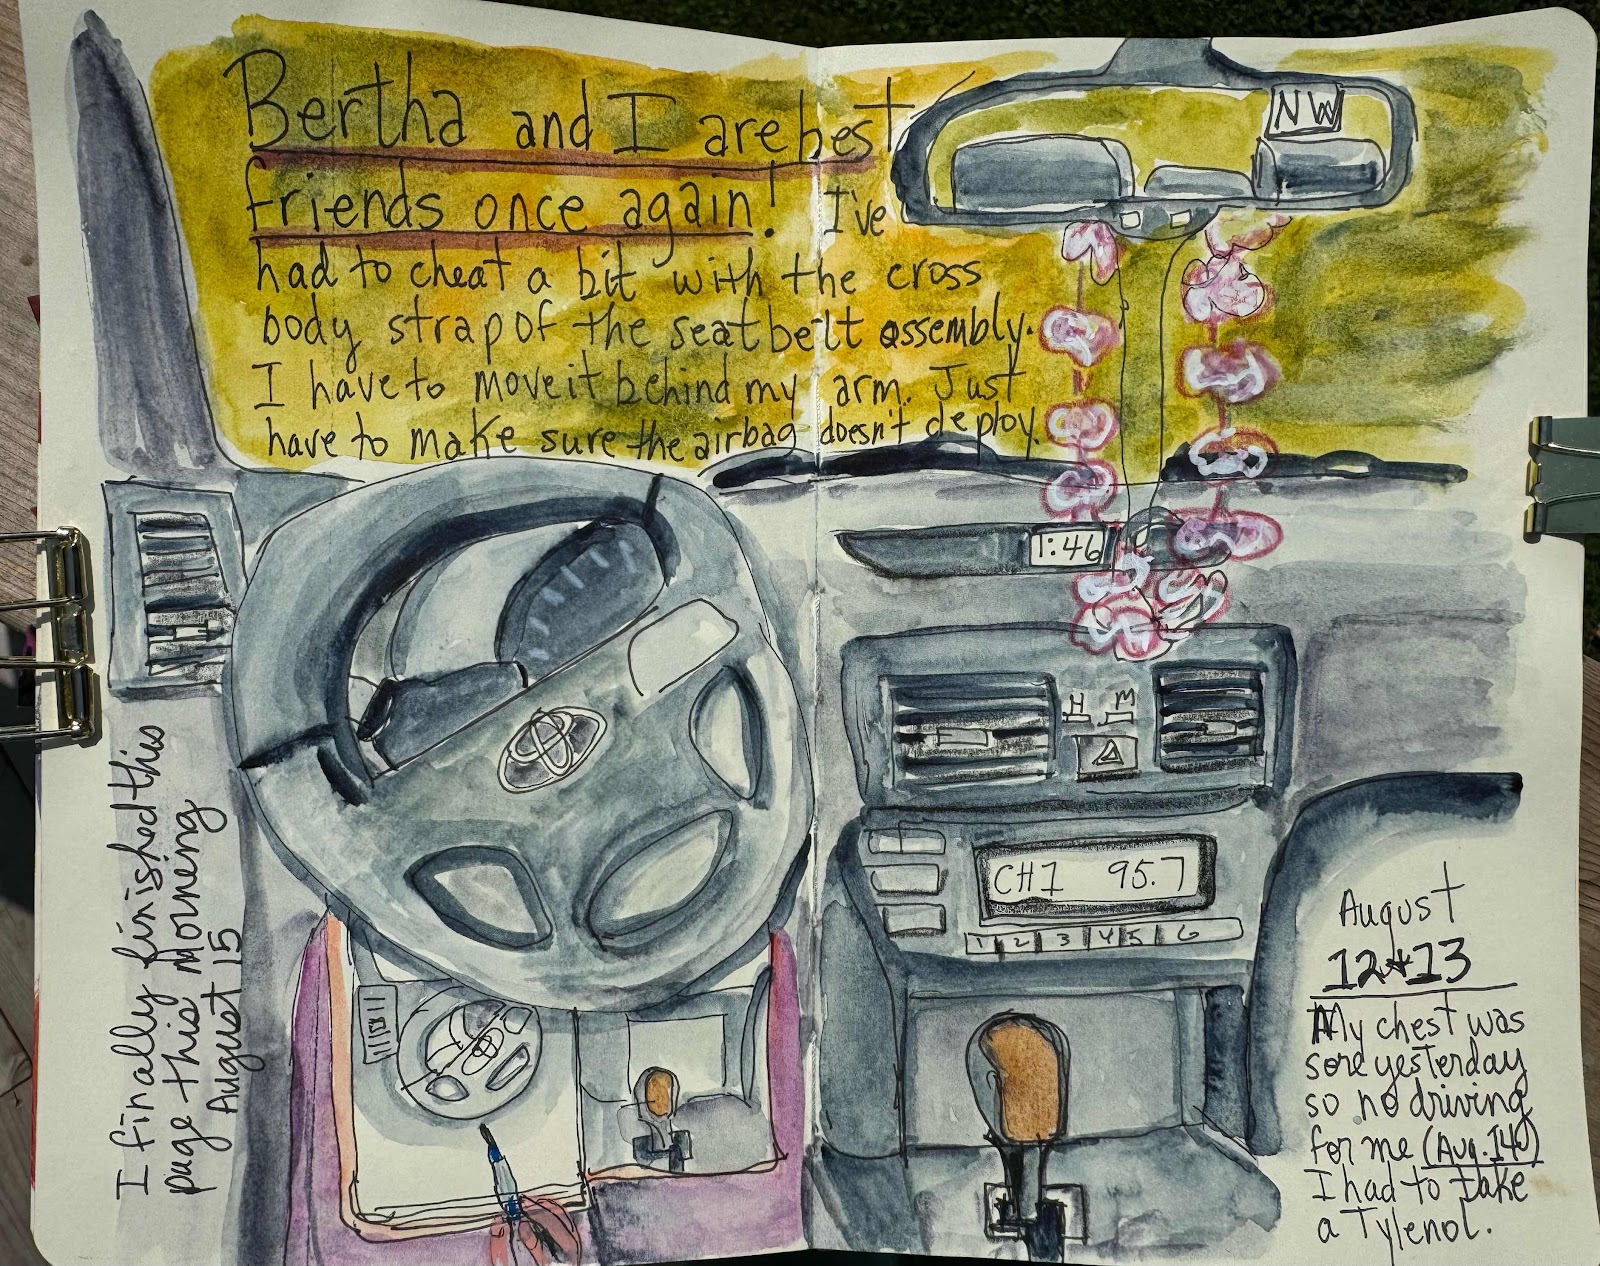 Bertha and I are best
friends once again! I've
had to cheat a bit with the cross
body strap of the seat belt assembly.
I have to move it behind my arm. Just
have to make sure the airbag doesn't deploy.
NW
1:46
H M
CH1 95.7
1 2 3 4 5 6
I finally finished this
page this morning
August 15
August
12+13
My chest was
sore yesterday
so no driving
for me (Aug. 14)
I had to take
a Tylenol.